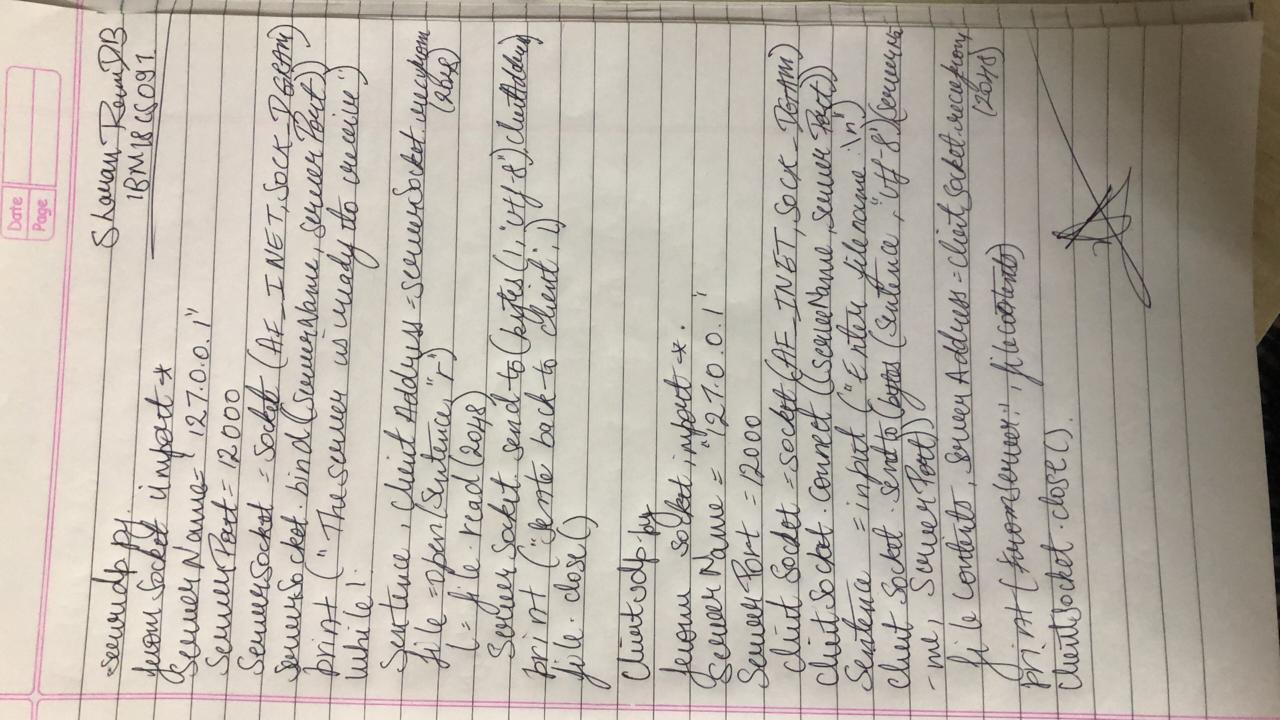 Date
Page
Sharan Ram DB
1BM18CS091
serverudp.py
from socket import *
ServerName = "127.0.0.1"
ServerPort = 12000
ServerSocket = Socket (AF_INET, SOCK_DGRAM)
ServerSocket.bind((serverName, serverPort))
print ("The server is ready to receive")
While 1:
Sentence, Client Address = serverSocket.recvfrom
(2048)
file = open(sentence, "r")
l = file.read(2048)
Server Socket.send to (bytes(l, "utf-8"), clientAddress)
print ("sente back to client", l)
file.close()
Clientudp.py
from socket import *
Server Name = "127.0.0.1"
Server Port = 12000
Client Socket = socket (AF_INET, SOCK_DGRAM)
Client Socket.connect ((serverName, server Port))
Sentence = input ("Enter file name: \n")
Client Socket.sent to (bytes (sentence, "utf-8"), (serverNa
-me, ServerPort))
file contents, server Address = client Socket.recvfrom
(2048)
print (from server:, filecontents)
ClientSocket.close()